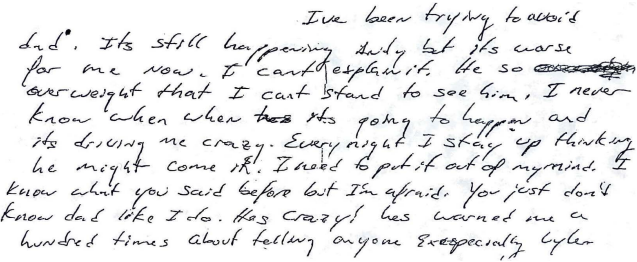 Ive been trying to avoid
dad. Its still happening Andy but its worse
for me now. I cant explain it. He so
overweight that I cant stand to see him. I never
know when when its going to happen and
its driving me crazy. Every night I stay up thinking
he might come in. I need to put it out of my mind. I
know what you said before but I'm afraid. You just don't
know dad like I do. Hes crazy! hes warned me a
hundred times about telling anyone Exespecially